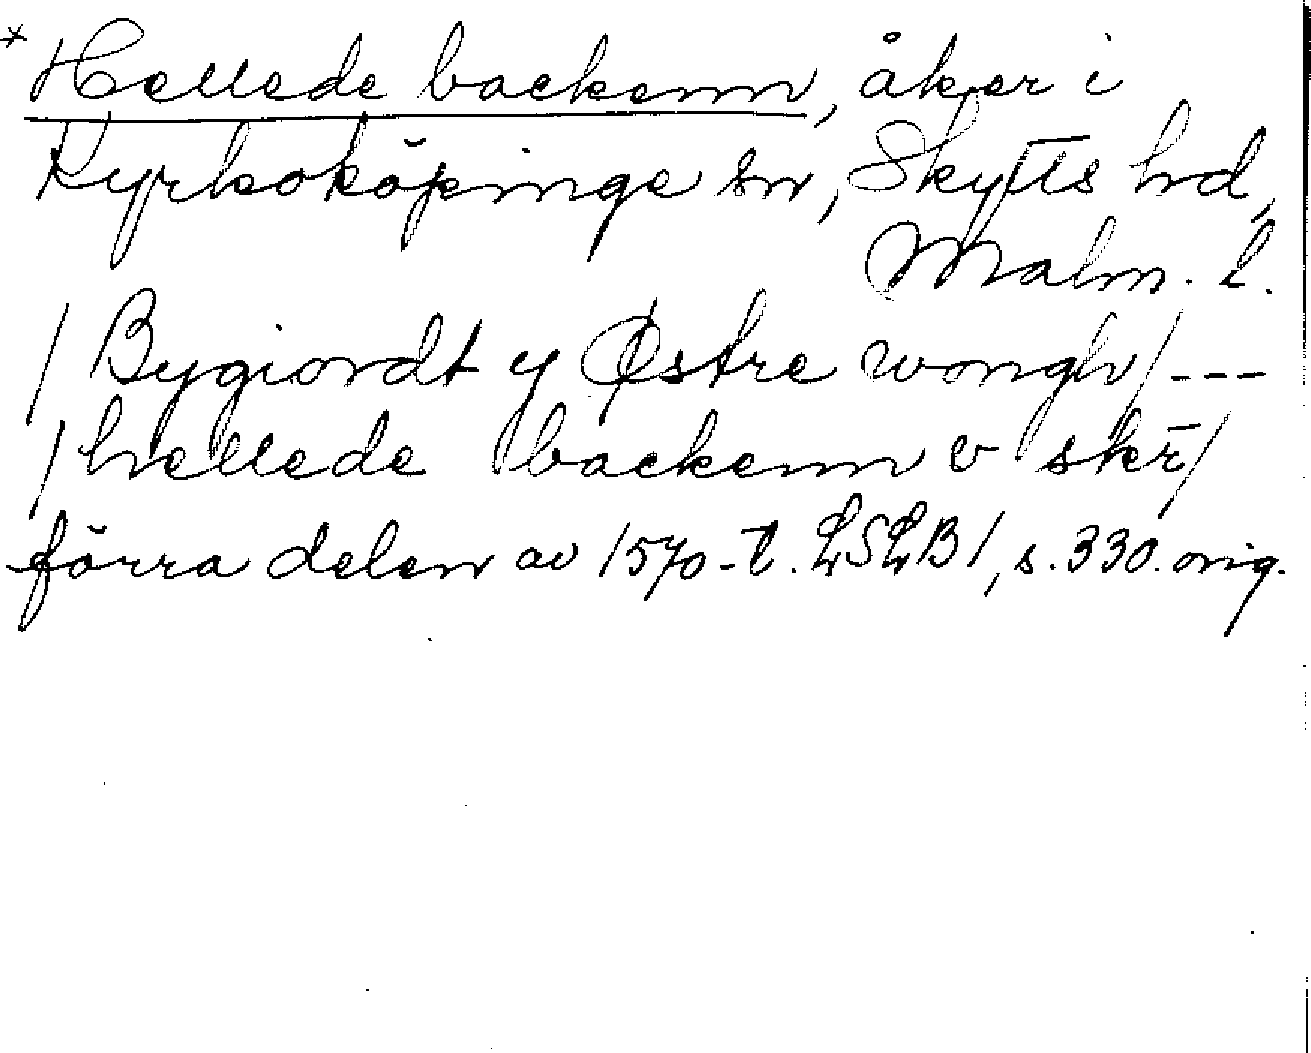 * Hellede backenn, åker i
Kyrkoköpinge sn, Skytts hd,
Malm. l.
/ Bygiordt y Østre wongh / ---
/ hellede backenn v skr̄ /
förra delen av 1570-t. LSLB 1, s. 330. orig.